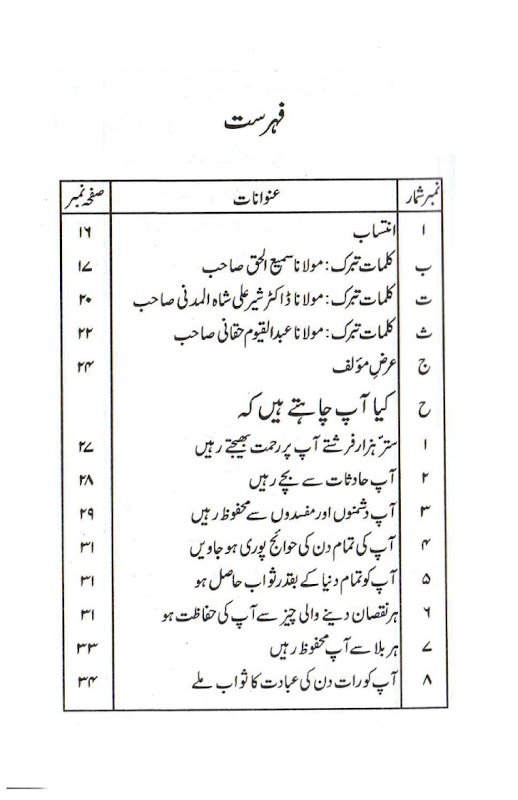 فہرست
نمبر شمار عنوانات صفحہ نمبر
ا انتساب ۱۶
ب کلمات تبرک: مولانا سمیع الحق صاحب ۱۷
ت کلمات تبرک: مولانا ڈاکٹر شیر علی شاہ المدنی صاحب ۲۰
ث کلمات تبرک: مولانا عبدالقیوم حقانی صاحب ۲۲
ج عرضِ مؤلف ۲۴
ح کیا آپ چاہتے ہیں کہ
۱ ستّر ہزار فرشتے آپ پر رحمت بھیجتے رہیں ۲۷
۲ آپ حادثات سے بچے رہیں ۲۸
۳ آپ دشمنوں اور مفسدوں سے محفوظ رہیں ۲۹
۴ آپ کی تمام دن کی حوائج پوری ہو جاویں ۳۱
۵ آپ کو تمام دنیا کے بقدر ثواب حاصل ہو ۳۱
۶ ہر نقصان دینے والی چیز سے آپ کی حفاظت ہو ۳۱
۷ ہر بلا سے آپ محفوظ رہیں ۳۳
۸ آپ کو رات دن کی عبادت کا ثواب ملے ۳۴